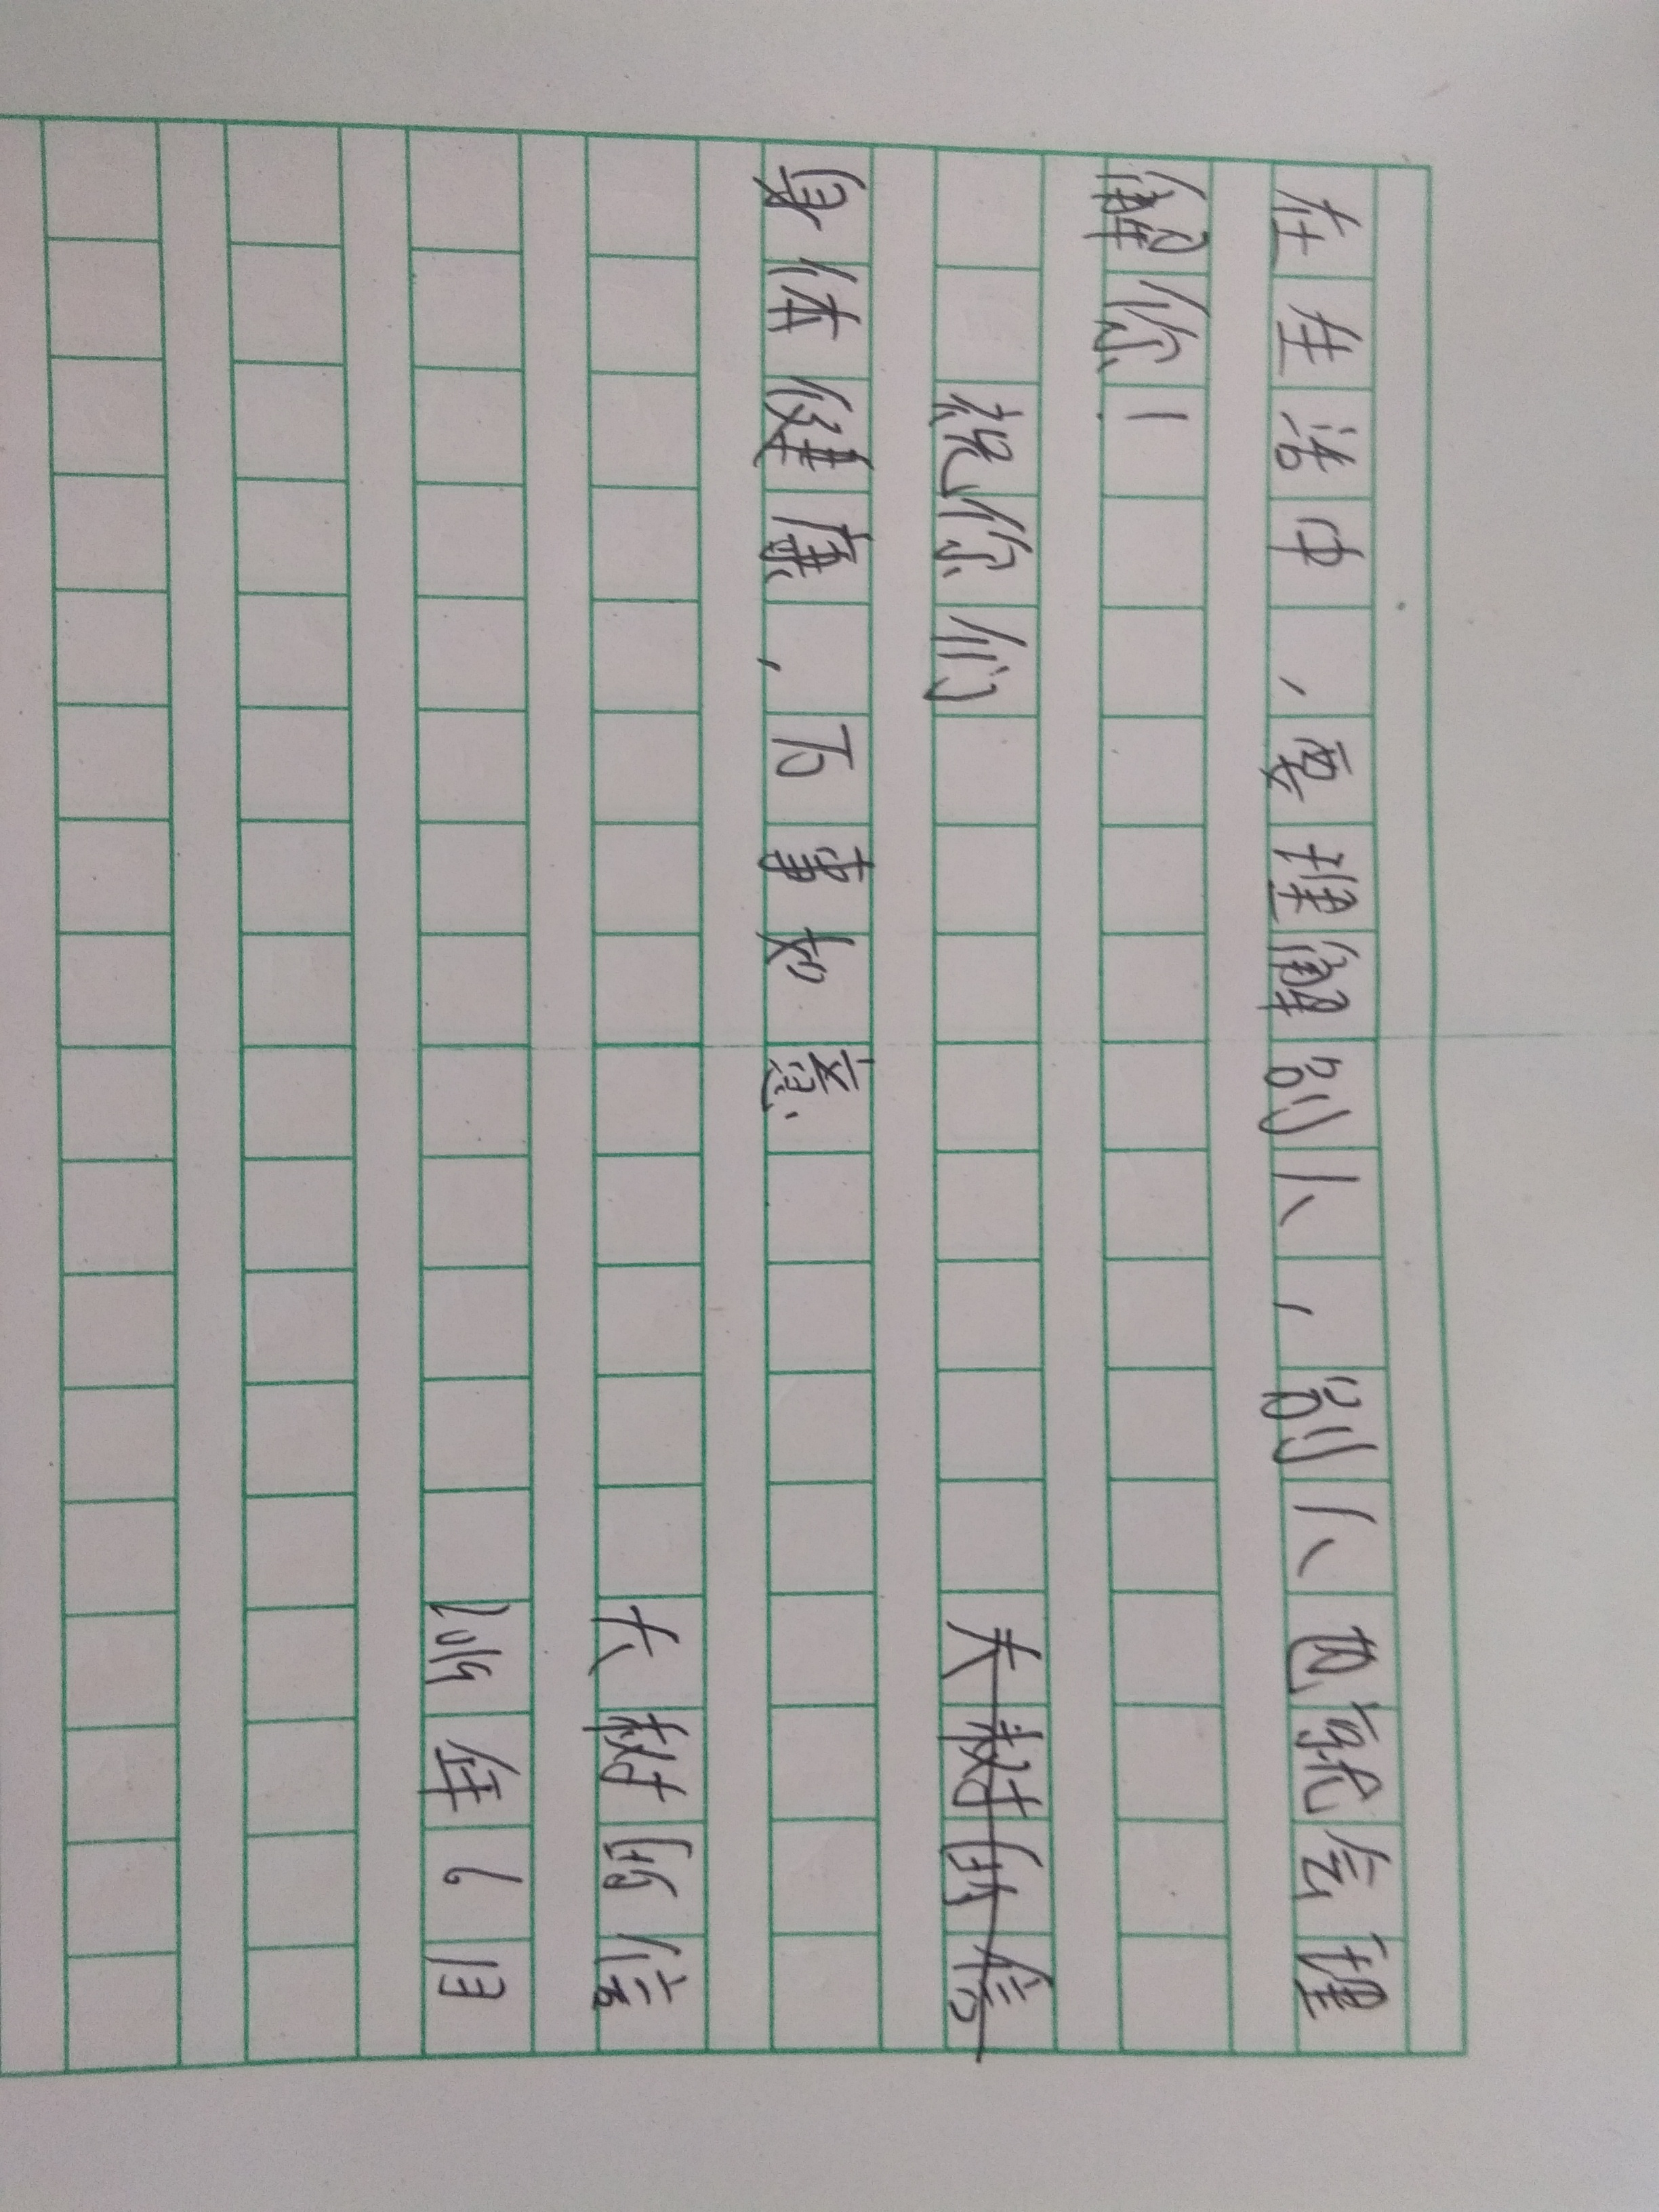 在生活中，要理解别人，别人也就会理
解你！
祝你们 大树的信
身体健康，万事如意
大树的信
年6月